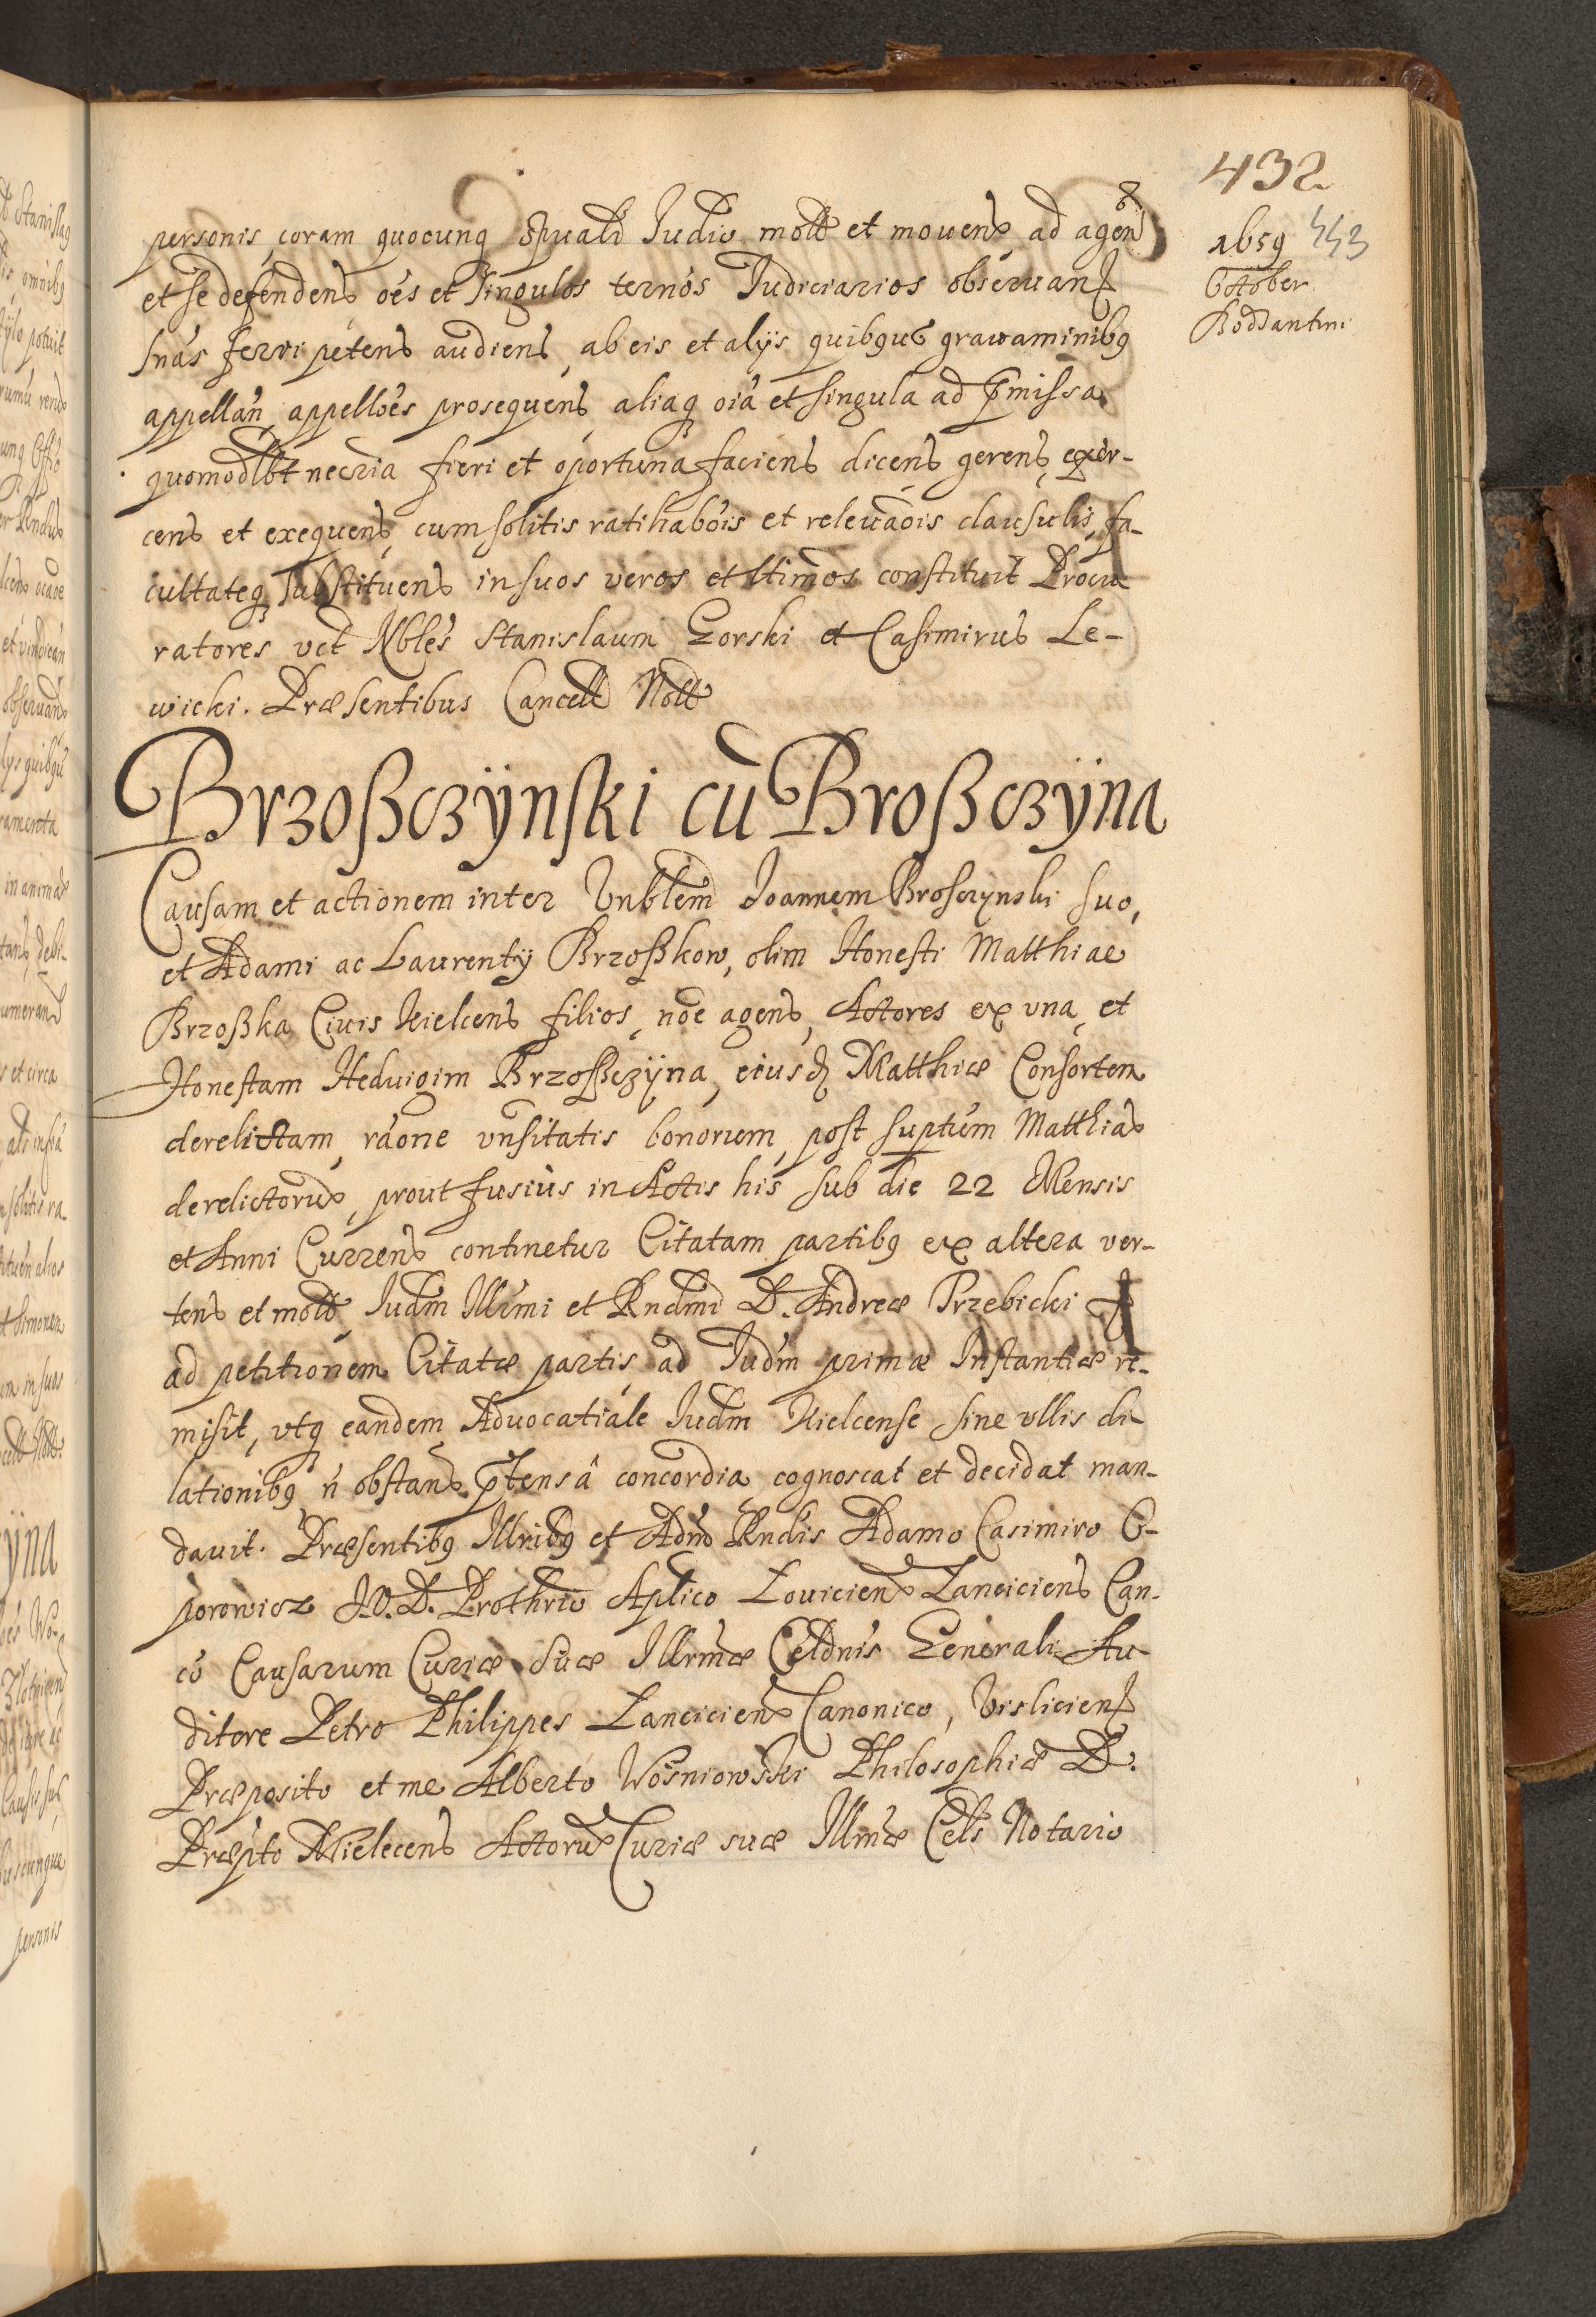 432
1659 443
October
Boddantini
personis, coram quocunq Spuali Judio mott et movens ad agen
et se defendens oes et singulos ternos Judiciarios observan
snas ferri petens audiens, ab eis et alijs quibgus gravaminibg
appellan appelloes prosequens aliaq oia et singula ad pmissa
quomodlbt necria fieri et oportuna faciens dicens gerens, exer-
cens et exequens, cum solitis ratihabois et relevaois clausulis, fa-
cultateq substituens in suos veros et ltimos constituit Procu
ratores vct Nbles Stanislaum Gorski et Casimirus Le-
wicki. Præsentibus Cancell Nott
Brzoßczÿnski cū Broßczÿna
Causam et actionem inter Vnblem Joannem Brosczynski suo,
et Adami ac Laurentij Brzoßkow, olim Honesti Matthiae
Brzoßka Civis Kielcens filios, noe agens, Actores ex vna, et
Honestam Hedvigim Brzoßczÿna, eiusd Matthiæ Consortem
derelictam, raone vnsitatis bonorum, post suptum Matthias
derelictorum, prout fusius in Actis his sub die 22 Mensis
et Anni Currens continetur Citatam partibg ex altera ver-
tens et mott, Iudm Illmi et Rndmi D. Andreæ Trzebicki
ad petitionem Citatæ partis, ad Iudm primæ Instantiæ re-
misit, vtq eandem Advocatiale Iudm Kielcense sine vllis di
lationibg n obstans ptensâ concordia cognoscat et decidat man-
davit. Præsentibg Illribg et Adm Rndis Adamo Casimiro O-
porowicz J.V.D. Prothrio Aplico Loviciens Lanciciens Can-
co Causarum Curiæ Suæ Illrmæ Celdnis Generali Au-
ditore Petro Philippes Lanciciens Canonico, Visliciens
Præposito et me Alberto Wosniowski Philosophiæ D.
Præpto Mielecens Actorum Curiæ suæ Illmæ Cels Notario